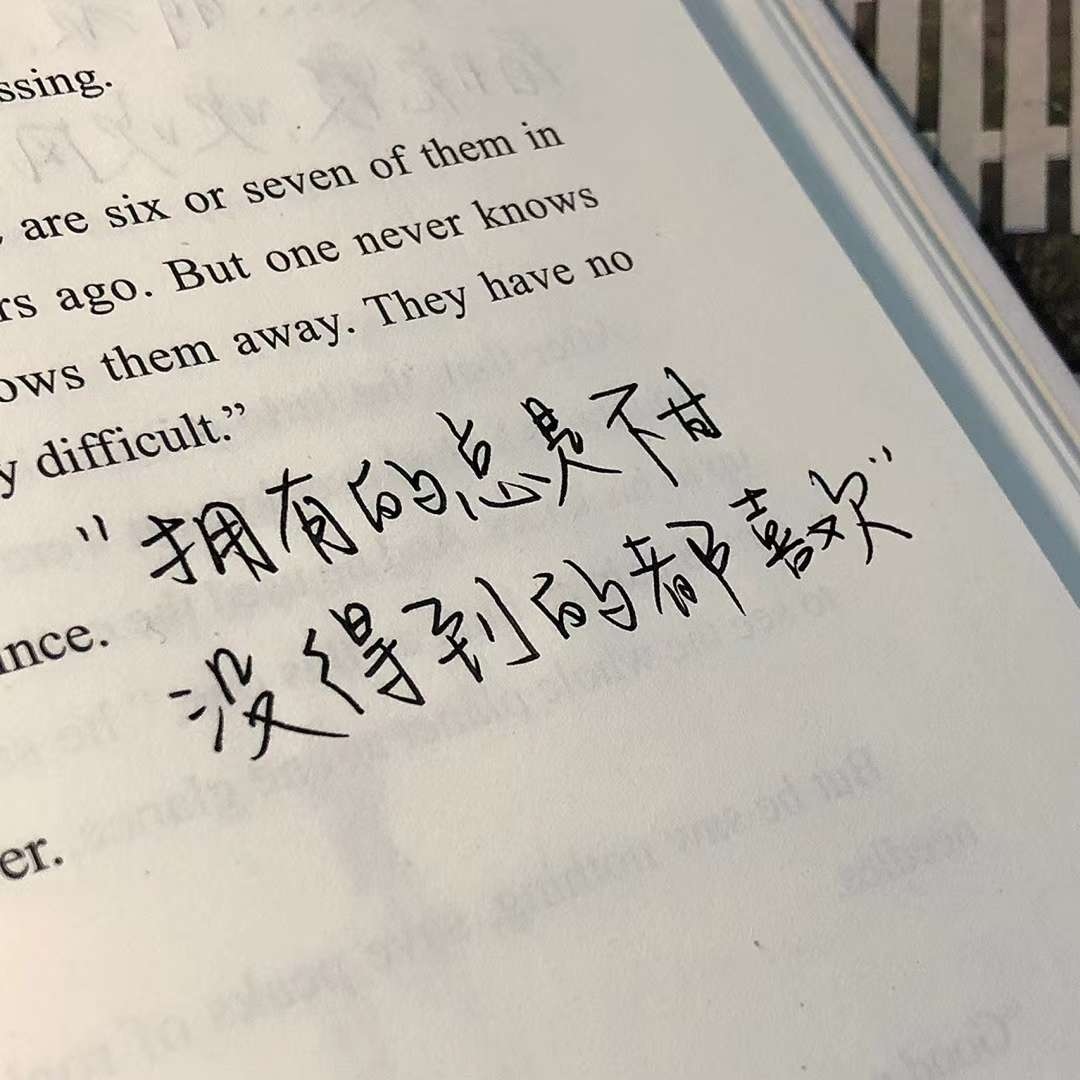 ssing.
are six or seven of them in
rs ago. But one never knows
ows them away. They have no
y difficult.”
“拥有的总是不甘
ance.
没得到的都喜欢”
er.